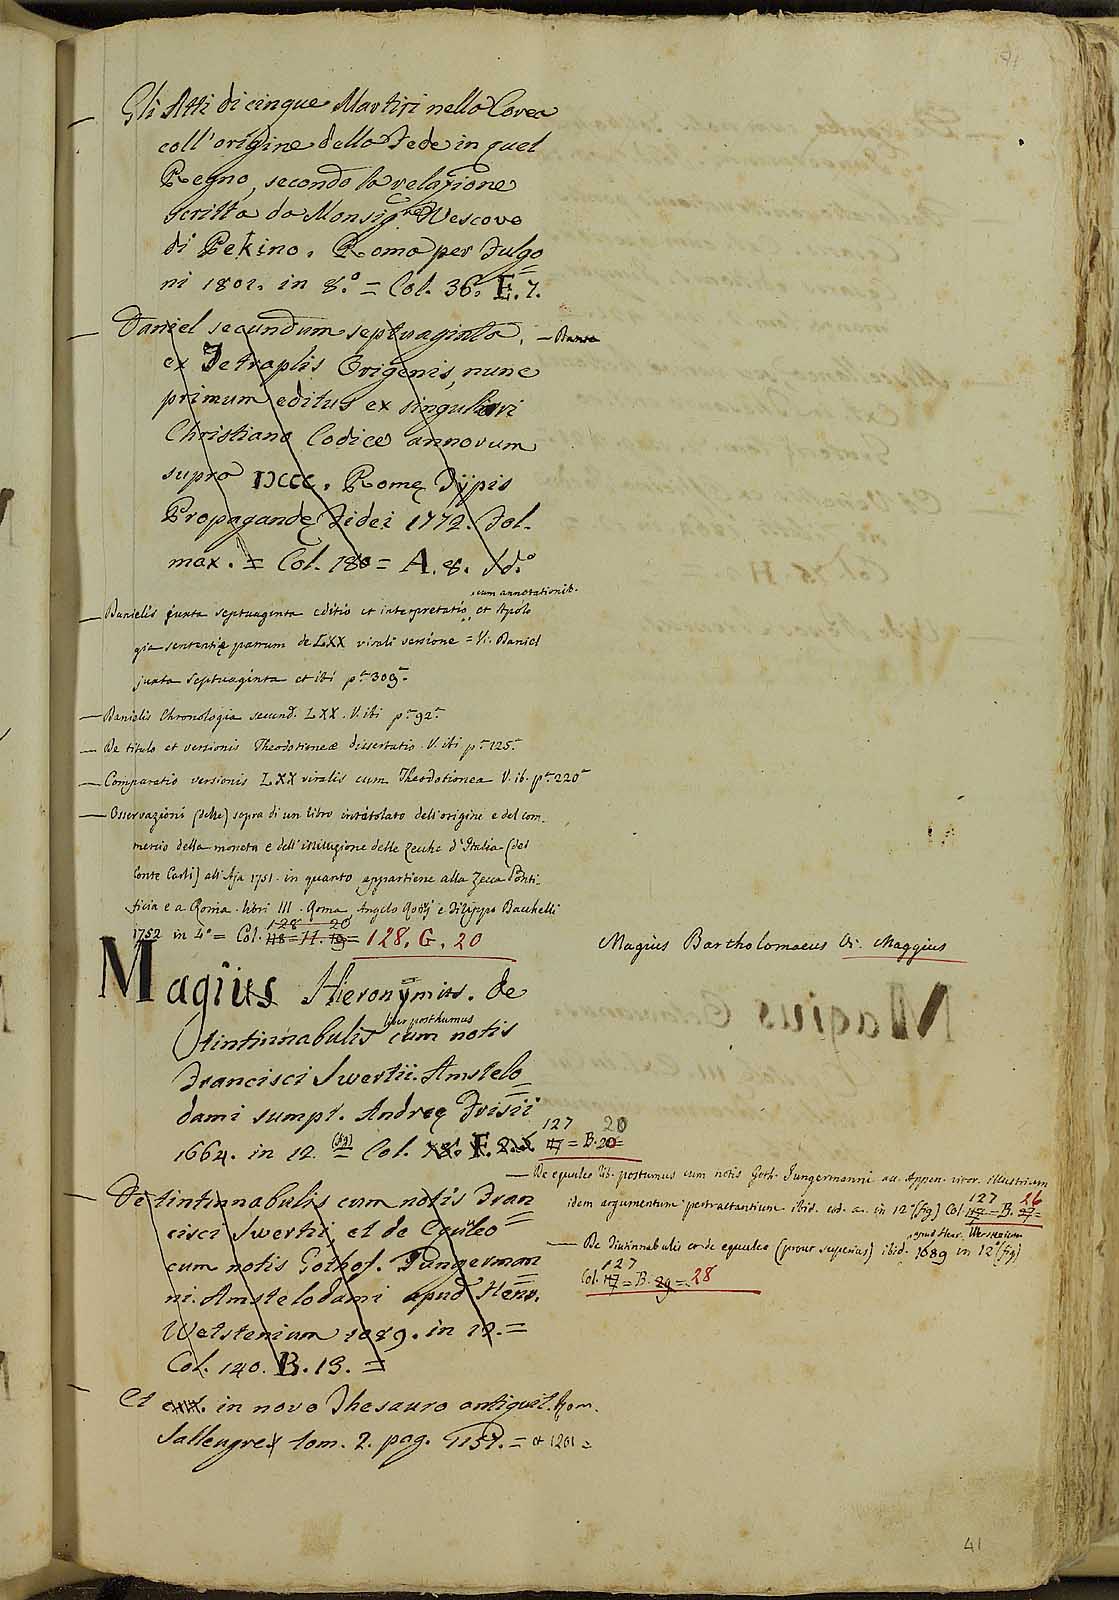 — Gli Atti di cinque Martiri nella Corea
coll'origine della Fede in quel
Regno, secondo la relazione
scritta da Monsig.re Vescovo
di Pekino. Roma per Fulgo
ni 1801. in 8.° = Col. 36. E. 7.
— Daniel secundum septuaginta, — Banra
ex Tetraplis Origenis, nunc
primum editus ex singulari
Christiano Codice annorum
supra DCCC. Romę Typis
Propagandę Fidei 1772. Fol.
max. = Col. 180 = A. 8.
cum annotationib.
— Danielis juxta septuaginta editio et interpretatio, et Apolo
gia sententię patrum de LXX virali versione = Vi. Daniel
juxta septuaginta et ibi p.ª 309.
— Danielis Chronologia secund. LXX. V. ibi p.ª 92.
— De titulo et versionis Theodotioneæ dissertatio. V. ibi p.ª 125.
— Comparatio versionis LXX viralis cum Theodotionea V. ib. p.ª 220
— Osservazioni (delle) sopra di un libro intitolato dell'origine e del com-
mercio della moneta e dell'istituzione delle zecche d'Italia (del
Conte Carli) all'Aja 1751. in quanto appartiene alla Zecca Ponti-
ficia e a Roma. libri III. Roma, Angelo Rotilj e Filippo Bacchelli
128 20
1752 in 4° = Col. 118 = H. 19 = 128. G. 20
Magius Bartholomaeus Vi. Maggius
Magius Hieronymus. De
liber posthumus
tintinnabulis cum notis
Francisci Swertii. Amstelo
dami sumpt. Andreę Frisii
1664. in 12. (fig) = Col. F.
127 20
= B. 20 =
— De equuleo lib. postumus cum notis Goth. Jungermanni acc. Appen. viror. illustrium
idem argumentum pertractantium ibid. eod. a. in 12° (fig) Col. 117 = B. 27 =
127 26
— De Tintinnabulis et de equuleo (prout superius) ibid. 1689 in 12° (fig)
apud Henr. Wetstenium
127
Col. 117 = B. 29 = 28
— De tintinnabulis cum notis Fran
cisci Swertii, et de Equleo
cum notis Gothof. Jungerman
ni. Amstelodami apud Henr.
Wetstenium 1689. in 12. =
Col. 140. B. 13. =
— Et in novo Thesauro antiquit. Rom.
Sallengre tom. 2. pag. 1157. = et 1201 =
41